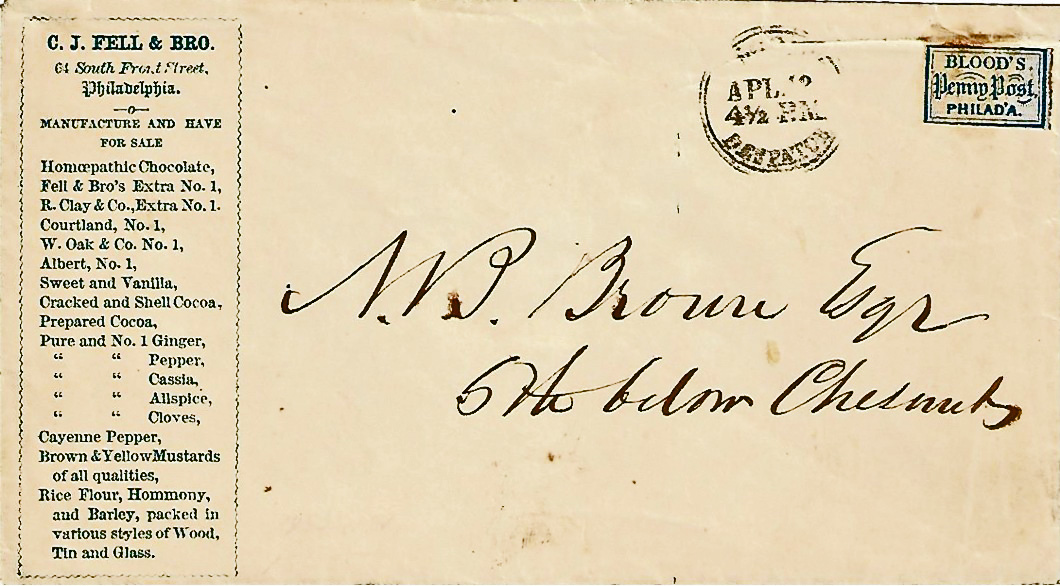 C. J. FELL & BRO.
64 South Front Street,
Philadelphia.
MANUFACTURE AND HAVE
FOR SALE
Homœpathic Chocolate,
Fell & Bro's Extra No. 1,
R. Clay & Co., Extra No. 1.
Courtland, No. 1,
W. Oak & Co. No. 1,
Albert, No. 1,
Sweet and Vanilla,
Cracked and Shell Cocoa,
Prepared Cocoa,
Pure and No. 1 Ginger,
“ “ Pepper,
“ “ Cassia,
“ “ Allspice,
“ “ Cloves,
Cayenne Pepper,
Brown & Yellow Mustards
of all qualities,
Rice Flour, Hommony,
and Barley, packed in
various styles of Wood,
Tin and Glass.
APL
4½ P.M.
DESPATCH
BLOOD'S
Penny Post.
PHILAD'A.
N. B. Browne Esqr
5th below Chesnut